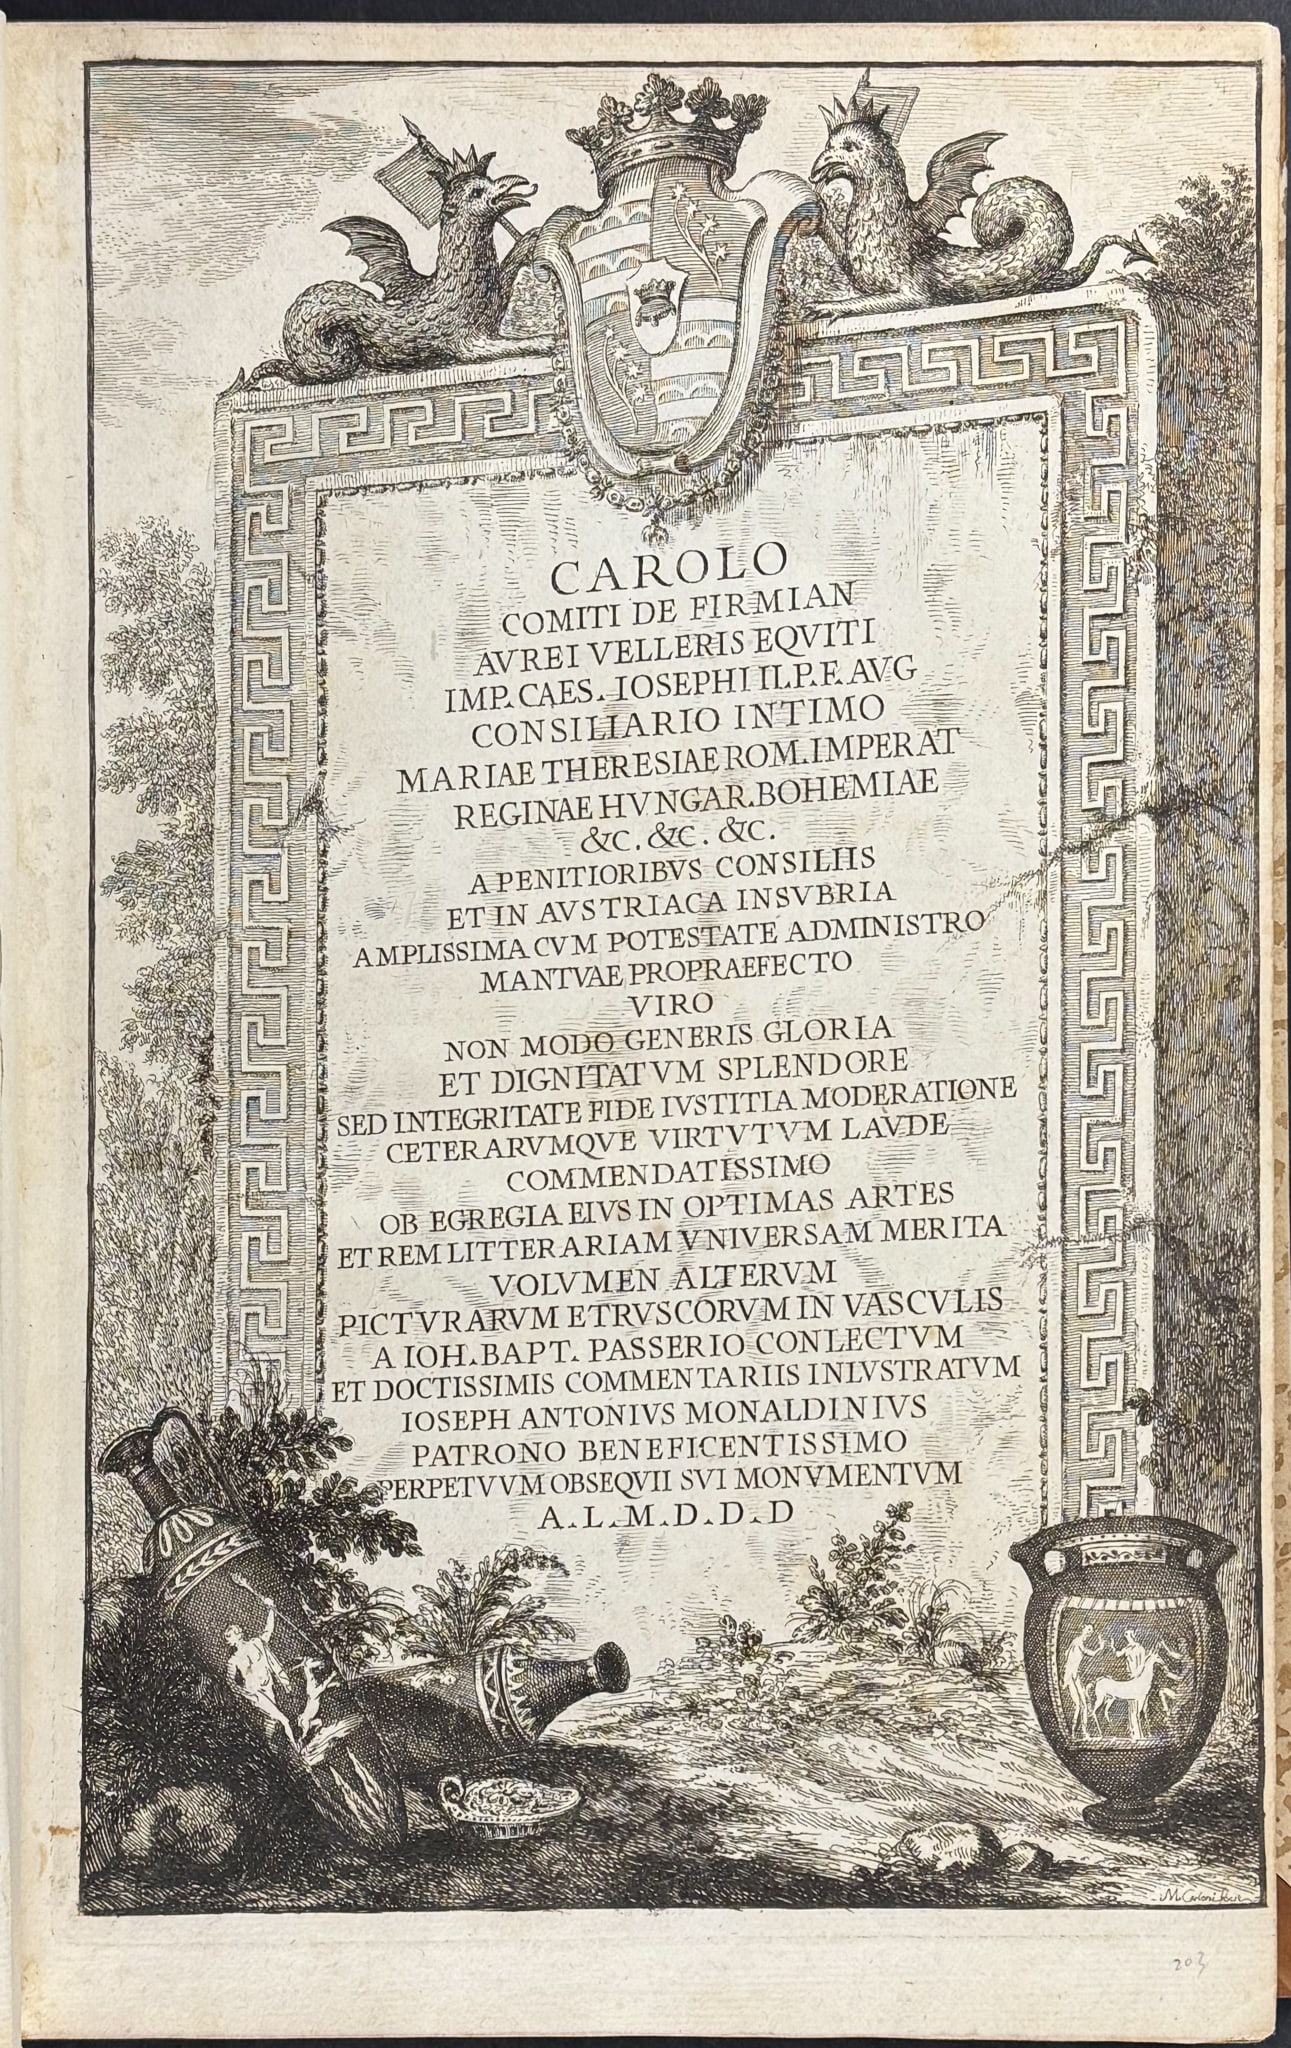 CAROLO
COMITI DE FIRMIAN
AVREI VELLERIS EQVITI
IMP. CAES. IOSEPHI II. P. F. AVG
CONSILIARIO INTIMO
MARIAE THERESIAE ROM. IMPERAT
REGINAE HVNGAR. BOHEMIAE
&C. &C. &C.
A PENITIORIBVS CONSILIIS
ET IN AVSTRIACA INSVBRIA
AMPLISSIMA CVM POTESTATE ADMINISTRO
MANTVAE PROPRAEFECTO
VIRO
NON MODO GENERIS GLORIA
ET DIGNITATVM SPLENDORE
SED INTEGRITATE FIDE IVSTITIA MODERATIONE
CETERARVMQVE VIRTVTVM LAVDE
COMMENDATISSIMO
OB EGREGIA EIVS IN OPTIMAS ARTES
ET REM LITTERARIAM VNIVERSAM MERITA
VOLVMEN ALTERVM
PICTVRARVM ETRVSCORVM IN VASCVLIS
A IOH. BAPT. PASSERIO CONLECTVM
ET DOCTISSIMIS COMMENTARIIS INLVSTRATVM
IOSEPH ANTONIVS MONALDINIVS
PATRONO BENEFICENTISSIMO
PERPETVVM OBSEQVII SVI MONVMENTVM
A. L. M. D. D. D
M. Carloni
203